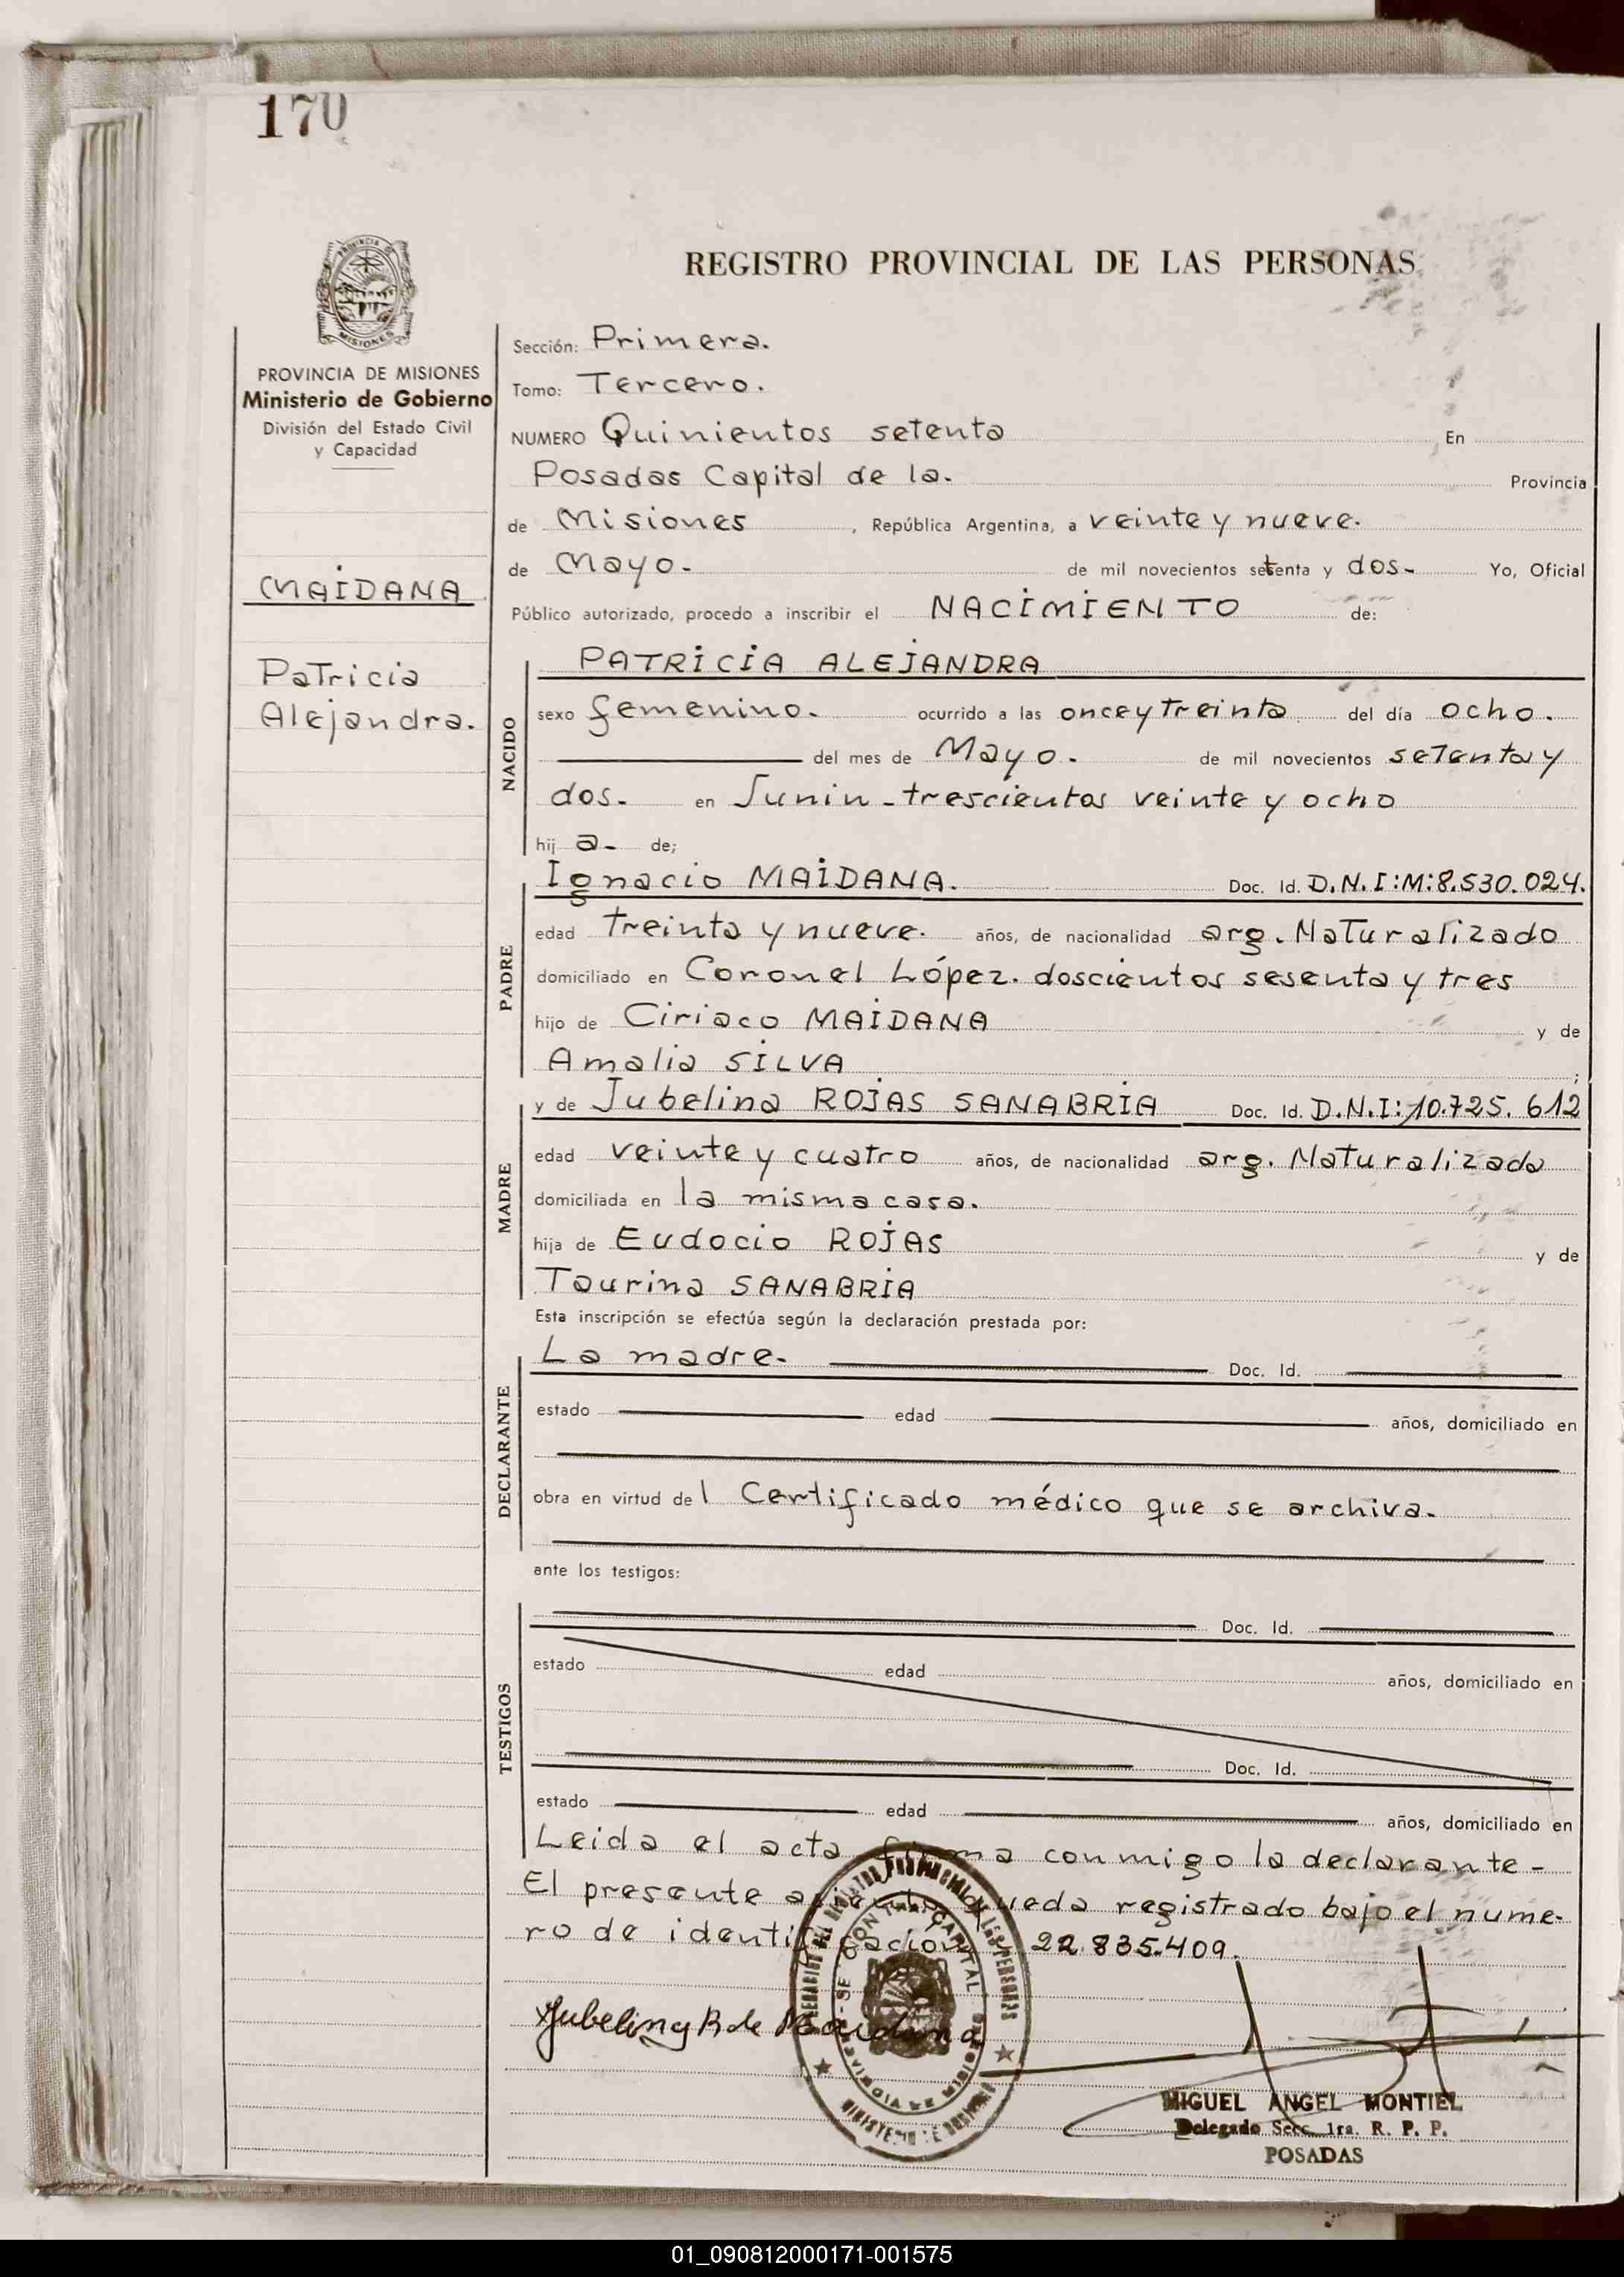 170
REGISTRO PROVINCIAL DE LAS PERSONAS
PROVINCIA DE
MISIONES
PROVINCIA DE MISIONES
Ministerio de Gobierno
División del Estado Civil
y Capacidad
MAIDANA
Patricia
Alejandra.
Sección: Primera.
Tomo: Tercero.
NUMERO Quinientos setenta En
Posadas Capital de la. Provincia
de Misiones, República Argentina, a veinte y nueve.
de Mayo. de mil novecientos setenta y dos- Yo, Oficial
Público autorizado, procedo a inscribir el NACIMIENTO de:
NACIDO
PATRICIA ALEJANDRA
sexo femenino. ocurrido a las once y treinta del día ocho.
del mes de Mayo. de mil novecientos setenta y
dos. en Junin - trescientos veinte y ocho
hij a- de;
PADRE
Ignacio MAIDANA. Doc. Id. D.N.I:M:8.530.024.
edad treinta y nueve. años, de nacionalidad arg. Naturalizado
domiciliado en Coronel López. doscientos sesenta y tres
hijo de Ciriaco MAIDANA y de
Amalia SILVA ;
MADRE
y de Jubelina ROJAS SANABRIA Doc. Id. D.N.I:10.725.612
edad veinte y cuatro años, de nacionalidad arg. Naturalizada
domiciliada en la misma casa.
hija de Eudocio ROJAS y de
Taurina SANABRIA
Esta inscripción se efectúa según la declaración prestada por:
DECLARANTE
La madre. Doc. Id.
estado edad años, domiciliado en
obra en virtud del Certificado médico que se archiva.
ante los testigos:
TESTIGOS
Doc. Id.
estado edad años, domiciliado en
Doc. Id.
estado edad años, domiciliado en
Leida el acta firma conmigo la declarante-
El presente asiento queda registrado bajo el nume-
ro de identificación 22.835.409.
Jubelina R de Maidana
MIGUEL ANGEL MONTIEL
Delegado Secc. 1ra. R. P. P.
POSADAS
01_090812000171-001575